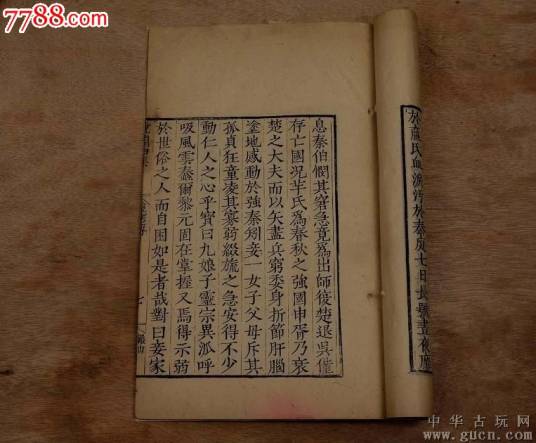 7788.com
氏血淚污於秦庭七日長號晝夜靡
息秦伯憫其窘急竟為出師復楚退吳僅
存亡國況芈氏為春秋之強國申胥乃衰
楚之大夫而以矢盡兵窮委身折節肝腦
塗地感動於強秦矧妾一女子父母斥其
孤貞狂童凌其寡弱綴旒之急安得不少
動仁人之心乎寶曰九娘子靈宗異派呼
吸風雲蠢爾黎元固在掌握又焉得示弱
於世俗之人而自困如是者哉對曰妾家
中华古玩网
www.gucn.com